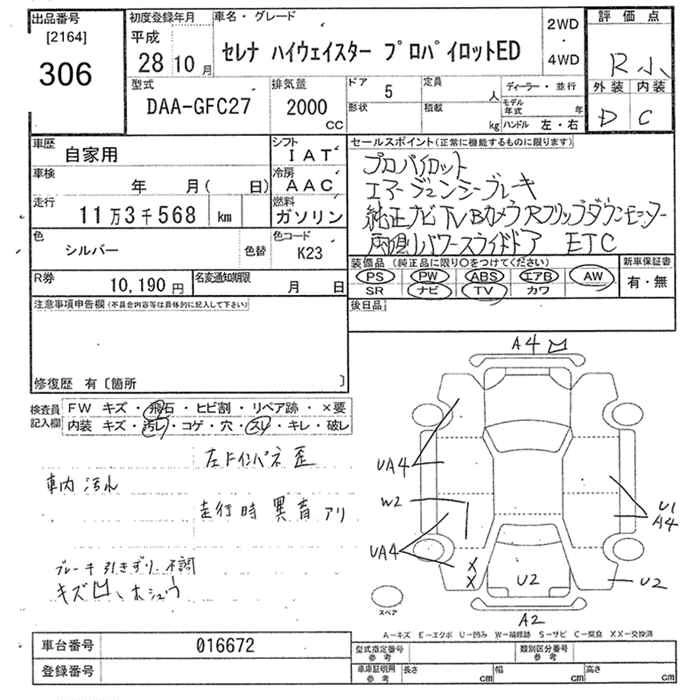 出品番号 初度登録年月 車名・グレード 2WD 評価点
[2164] 平成 ・
306 28 10月 セレナ ハイウェイスター プロパイロットED 4WD R小
型式 排気量 ドア 5 定員 人 ディーラー・並行 外装 内装
DAA-GFC27 2000 CC 形状 積載 kg モデル年式 年 D C
ハンドル 左・右
車歴 自家用 シフト IAT セールスポイント(正常に機能するものに限ります)
車検 年 月( 日) 冷房 AAC プロパイロット
走行 11万3千568 km 燃料 ガソリン エマージェンシーブレーキ
色 シルバー 色替 色コード K23 純正ナビTVBカメラRフリップダウンモニター
両側パワースライドドア ETC
R券 10,190円 名変通知期限 月 日 装備品(純正品に限り○をつけてください) 新車保証書
PS PW ABS エアB AW 有・無
SR ナビ TV カワ
注意事項申告欄(不具合内容等は具体的に記入して下さい) 後日品
修復歴 有〔箇所 〕
検査員記入欄 FW キズ・飛石・ヒビ割・リペア跡・×要
内装 キズ・汚れ・コゲ・穴・スレ・キレ・破レ
左ドインパネ歪
車内汚れ
走行時異音アリ
ブレーキ引きずり、不調
キズ凹、ホシュウ
A4
UA4
W2
UA4
U1
A4
X
X
U2
U2
スペア
A2
A-キズ E-エクボ U-凹み W-補修跡 S-サビ C-腐食 XX-交換済
車台番号 016672 型式指定番号 参考 類別区分番号 参考
登録番号 車庫証明用 参考 長さ cm 幅 cm 高さ cm